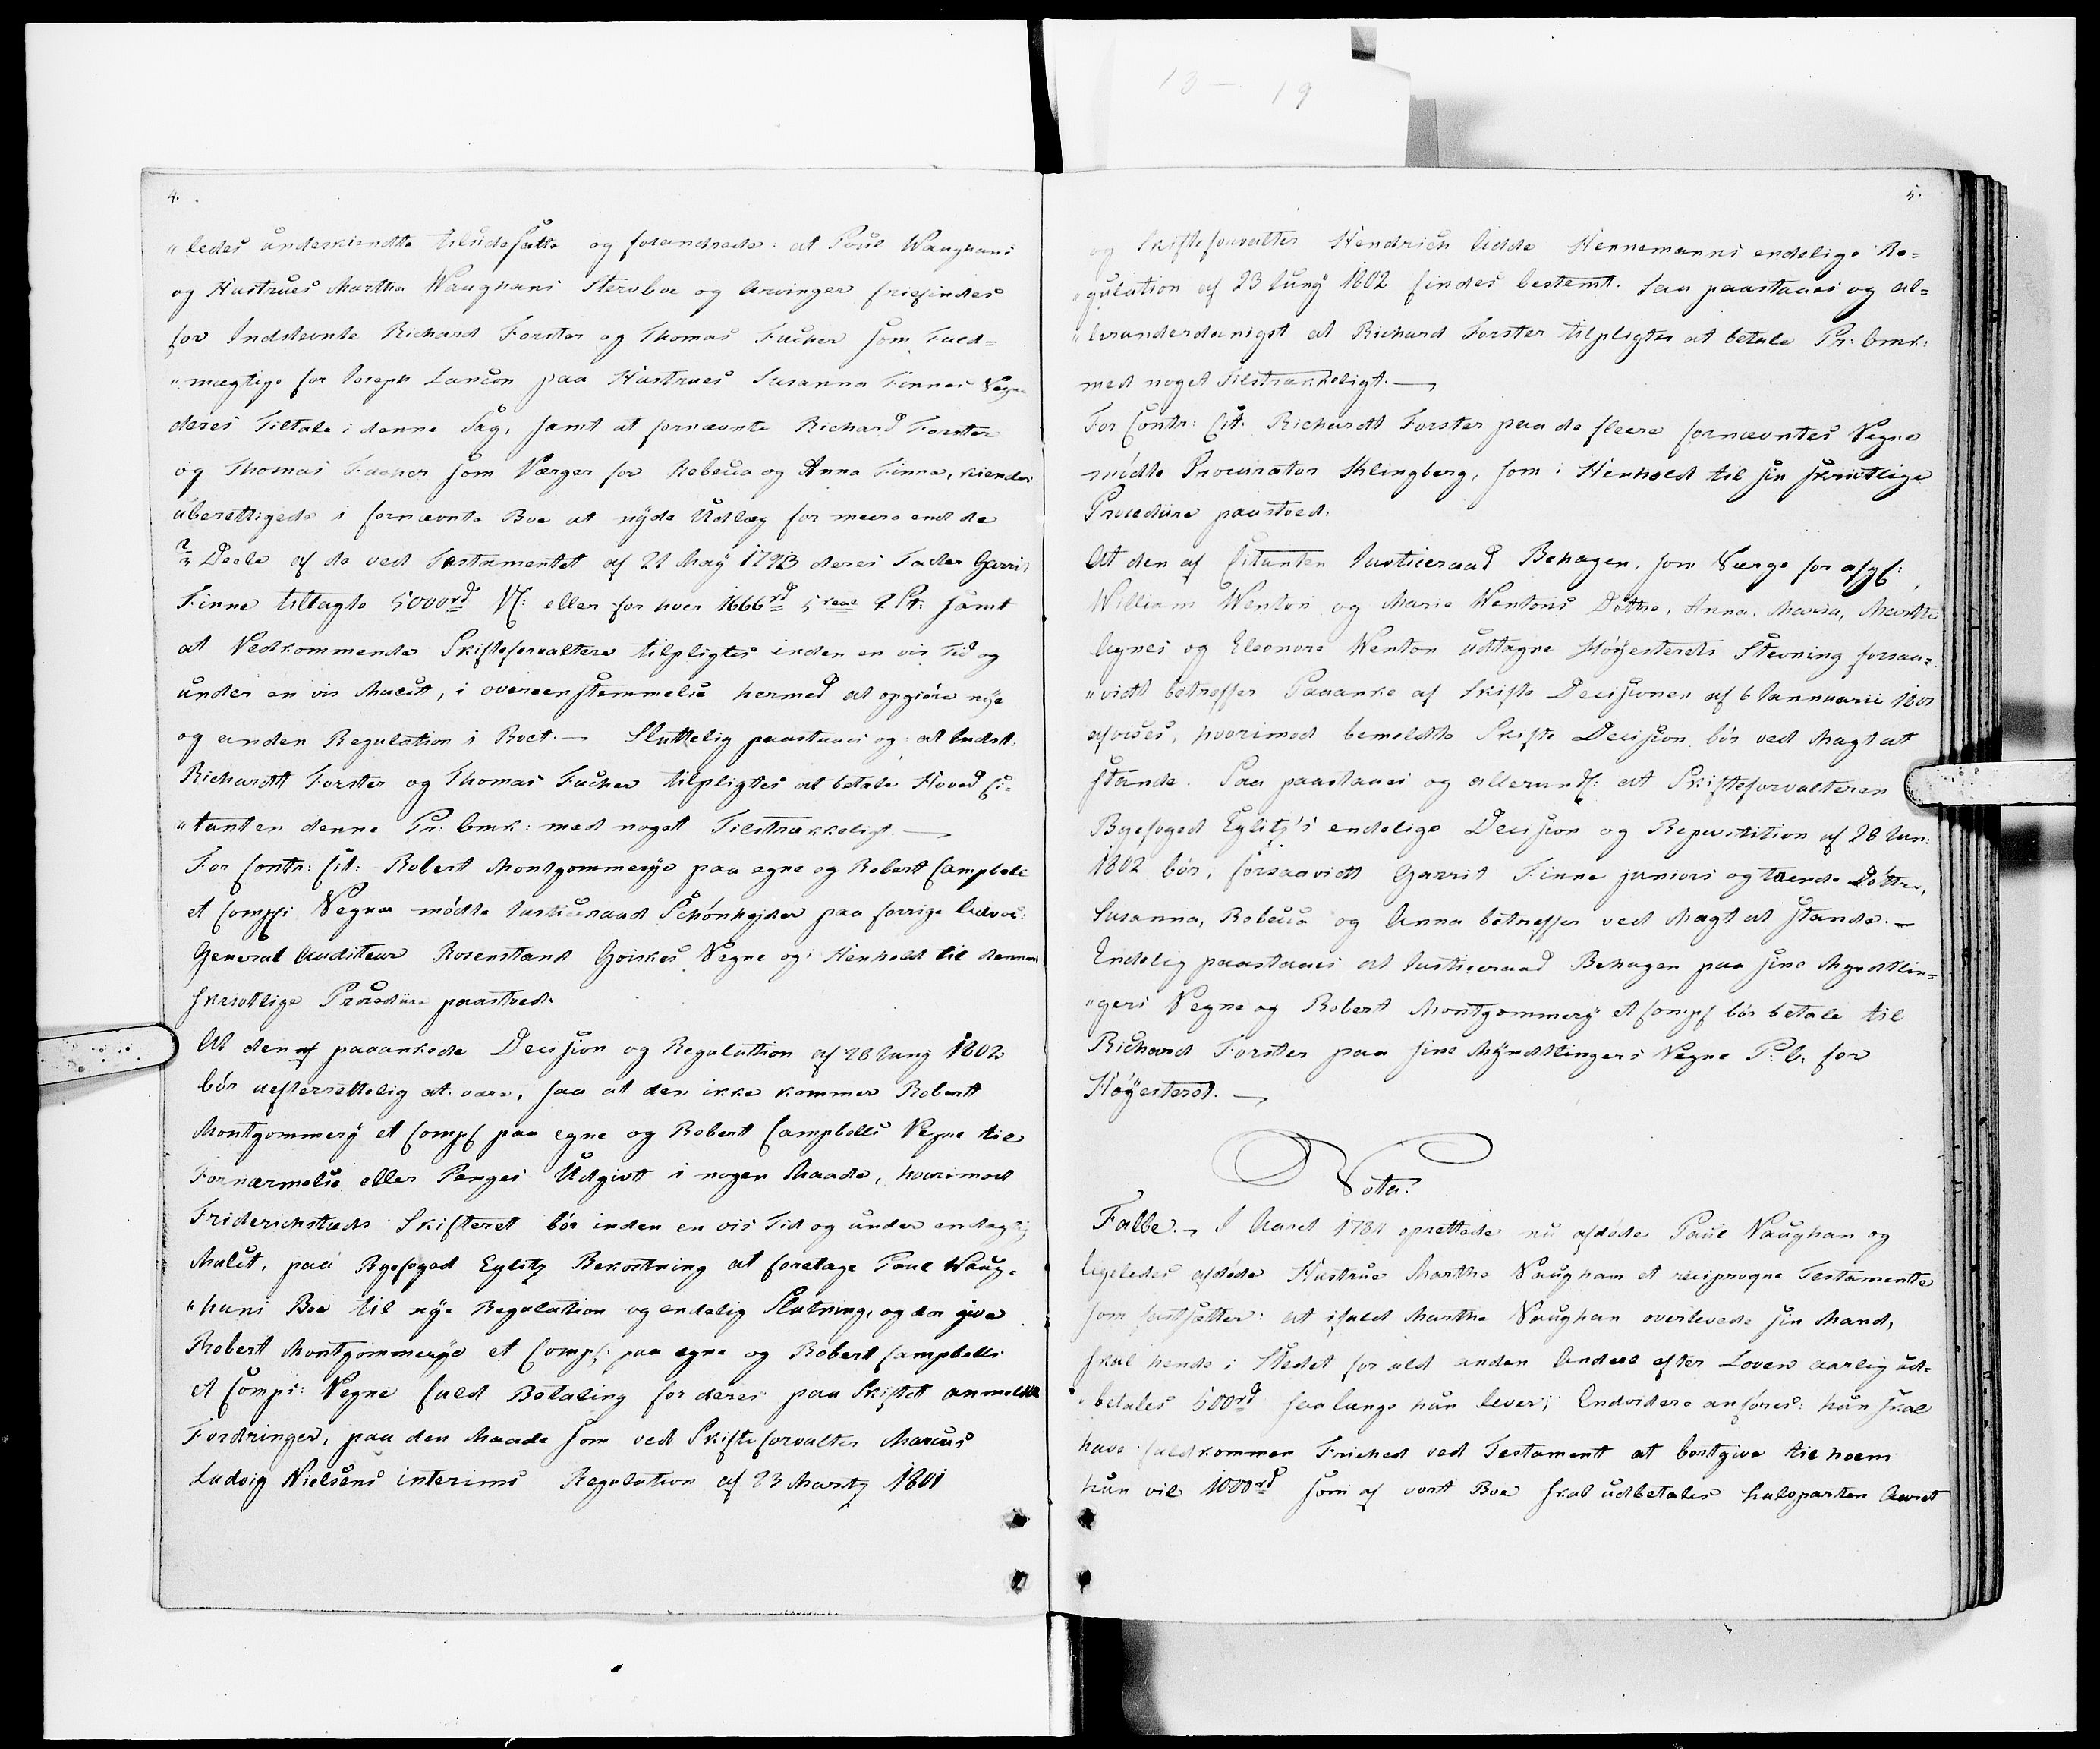 13 - 19
4.
"ledes underkiendte tilsidesatte og forandrede: at Poul Waughans
og Hustrues Martha Waughans Sterboe og Arvinger friefindes
for Indstevnte Richard Forster og Thomas Fucher som Fuld=
"mægtige for Joseph Lancon paa Hustrues Susanna Finnes Vegne
deres Tiltale i denne Sag, samt at fornævnte Richard Forster
og Thomas Fucher som Værger for Rebecca og Anna Finne, kiendes
uberettigede i fornævnte Boe at nyde Udlæg for meere end de
Deele af de ved Testamentet af 21 May 1793 deres Fader Garrit
Finne tillagte 5000rd eller for hver 1666rd 5 samt
at Vedkommende Skifteforvaltere tilpligtes inden en vis Tid og
under en vis Mulct, i overeenstemmelse hermed at opgiøre nye
og anden Regulation i Boet. — Sluttelig paastaaes og: at Indst.
Richardt Forster og Thomas Fucher tilpligtes at betale Hoved Ci=
"tanten denne Pr: Omk: med noget Tilstrækkeligt. —
For Contr: Cit: Robert Montgommerye paa egne og Robert Campbell
et Comps: Vegne mødte Justiceraad Schønheyder paa forrige Advoc:
General Auditeur Rosenstand Goiskes Vegne og i Henhold til dennes
skrivtlige Procedure paastoed.
At den af paaankede Decision og Regulation af 28 Juny 1802
bør uefterrettelig at være, saa at den ikke kommer Robert
Montgommery et Comps paa egne og Robert Campbells Vegne til
Fornærmelse eller Penges Udgivt i nogen Maade, hvorimod
Friderichstads Skifteret bør inden en vis Tid og under en daglig
Mulct, paa Byefoged Eglitz Bekostning at foretage Poul Waug=
"hans Boe til nye Regulation og endelig Slutning, og der give
Robert Montgommerye et Comps: paa egne og Robert Campbells
et Comps: Vegne fuld Betaling for deres paa Skiftet anmeldte
Fordringer, paa den Maade som ved Skifteforvalter Marcus
Ludvig Nielsens interims Regulation af 23 Martz 1801
5.
og Skifteforvalter Hendrich Hennemanns endelige Re=
"gulation af 23 Juny 1802 findes bestemt. Saa paastaaes og al=
"lerunderdanigst at Richard Forster tilpligtes at betale Pr: Omk:
med noget Tilstrækkeligt. —
For Contr: Cit: Richardt Forster paa de fleere fornævntes Vegne
mødte Procurator Klingberg, som i Henhold til sin skrivtlige
Procedure paastoed:
At den af Citanten Justiceraad Behagen, som Værge for afg:
William Wenton og Marie Wentons Døttre, Anna, Maria, Martha
Agnes og Eleonore Wenton udtagne Høyesterets Stevning forsaa=
"vidt betreffer Paaanke af Skifte Decisionen af 6 Jannuarii 1801
afvises, hvorimod bemeldte Skifte Decision bør ved Magt at
stande. Saa paastaaes og allerund: at Skifteforvalteren
Byefoged Eglitz's endelige Decision og Repartition af 28 Jun:
1802 bør, forsaavidt Garrit Finne juniors og trende Døttre,
Susanna, Rebecca og Anna betreffer ved Magt at stande. —
Endelig paastaaes at Justiceraad Behagen paa sine Myndtlin=
"gers Vegne og Robert Montgommery et Comps bør betale til
Richard Forster paa sine Myndtlingers Vegne P: O: for
Høyesteret. —
Vota.
Falbe. — I Aaret 1781 oprettede nu afdøde Paul Vaughan og
ligeledes afdøde Hustrue Martha Vaughan et reciproqne Testamente
som fastsætter: at ifald Martha Vaughan overlevede sin Mand,
skal hende i Stedet for ald anden Andeel efter Loven aarlig ud=
"betales 500rd saalænge hun lever; Endvidere anføres: hun skal
have fuldkommen Friehed ved Testament at bortgive til hvem
hun vil 1000rd som af vort Boe skal udbetales halvparten Aaret